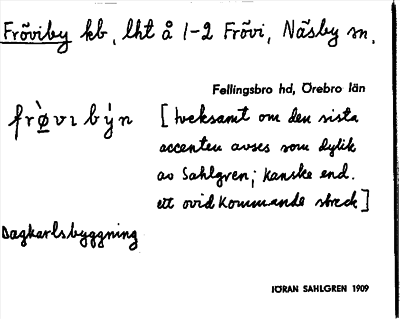 Fröviby kb, lht å 1-2 Frövi, Näsby sn.
Fellingsbro hd, Örebro län
frø̀vɩ bý̀n [tveksamt om den sista
accenten avses som dylik
av Sahlgren; kanske end.
ett ovidkommande streck]
Dagkarlsbyggning
IÖRAN SAHLGREN 1909